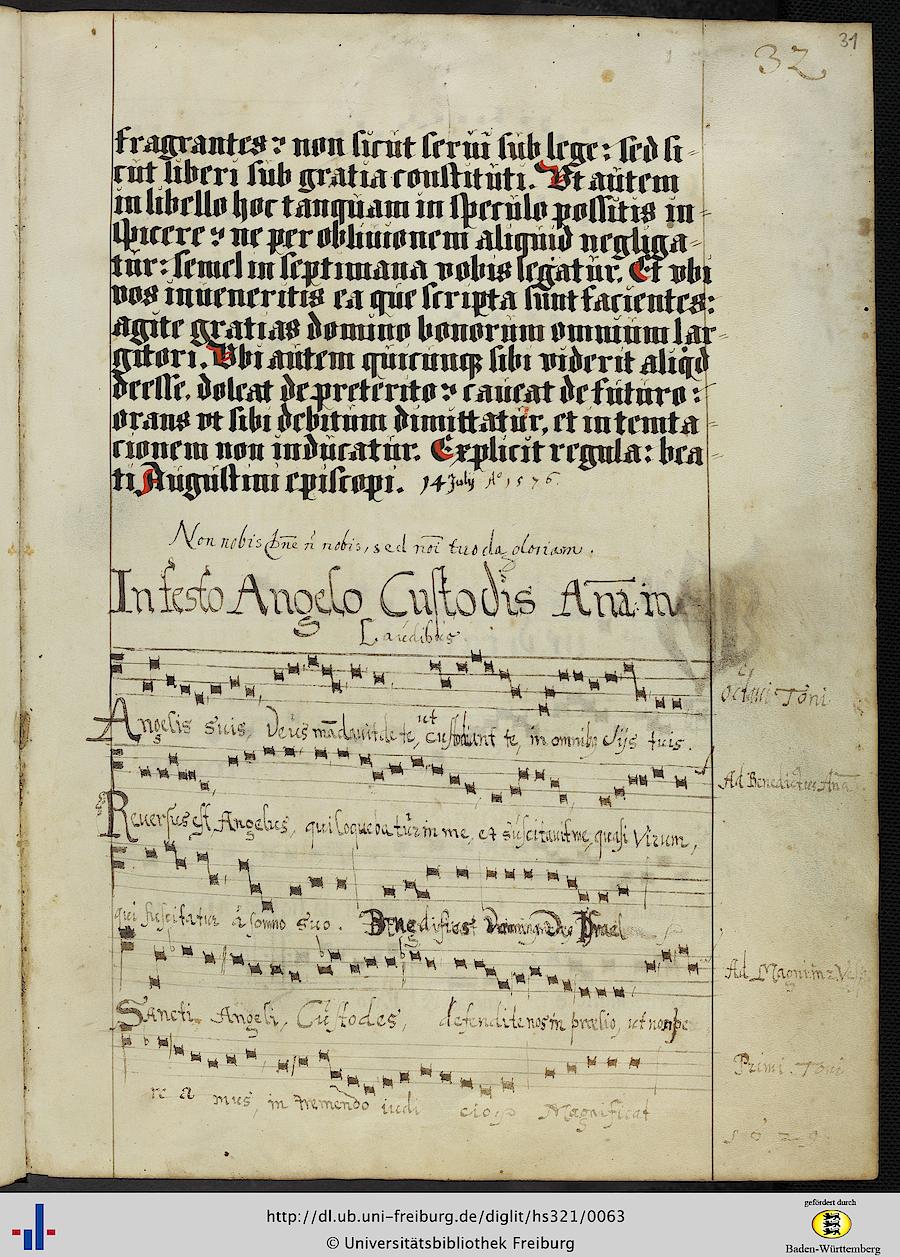 31
32
fragrantes: non sicut serui sub lege: sed si-
cut liberi sub gratia constituti. Vt autem
in libello hoc tanquam in speculo possitis in-
spicere: ne per obliuionem aliquid negliga-
tur: semel in septimana vobis legatur. Et vbi
vos inueneritis ea que scripta sunt facientes:
agite gratias domino bonorum omnium lar
gitori. Vbi autem quicunqꝫ sibi viderit aliqd
deesse, doleat de preterito: caueat de futuro:
orans vt sibi debitum dimittatur, et in temta
cionem non inducatur. Explicit regula: bea
ti Augustini episcopi. 14 July Aº 1576.
Non nobis dne n nobis, sed noi tuo da gloriam.
In festo Angelo Custodis Ana in
Laudibus
octaui Toni
Angelis suis, Deus madauit de te, ut custodiant te, in omnibꝫ vijs tuis.
Ad Benedictus Ana
Reuersus est Angelus, qui loquebatur in me, et suscitauit me, quasi Virum,
qui suscitatur a somno suo. Benedictus Israel
Ad Magnim
Sancti Angeli, Custodes, defendite nos in prælio, ut non pe
Primi Toni
re a mus, in tremendo iudi cio, Magnificat
http://dl.ub.uni-freiburg.de/diglit/hs321/0063
© Universitätsbibliothek Freiburg
gefördert durch
Baden-Württemberg